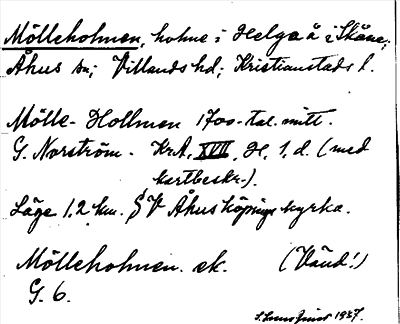 Mölleholmen, holme i Helgaå i Skåne;
Åhus sn; Villands hd; Kristianstads l.
Mölle-Hollmen 1700-tal. mitt.
G. Norström. KrA, XVII, H. 1. d. (med
kartbeskr.).
Läge 1,2 km. SV Åhus köpings kyrka.
Mölleholmen. ek. (Vänd!)
G. 6.
1937.